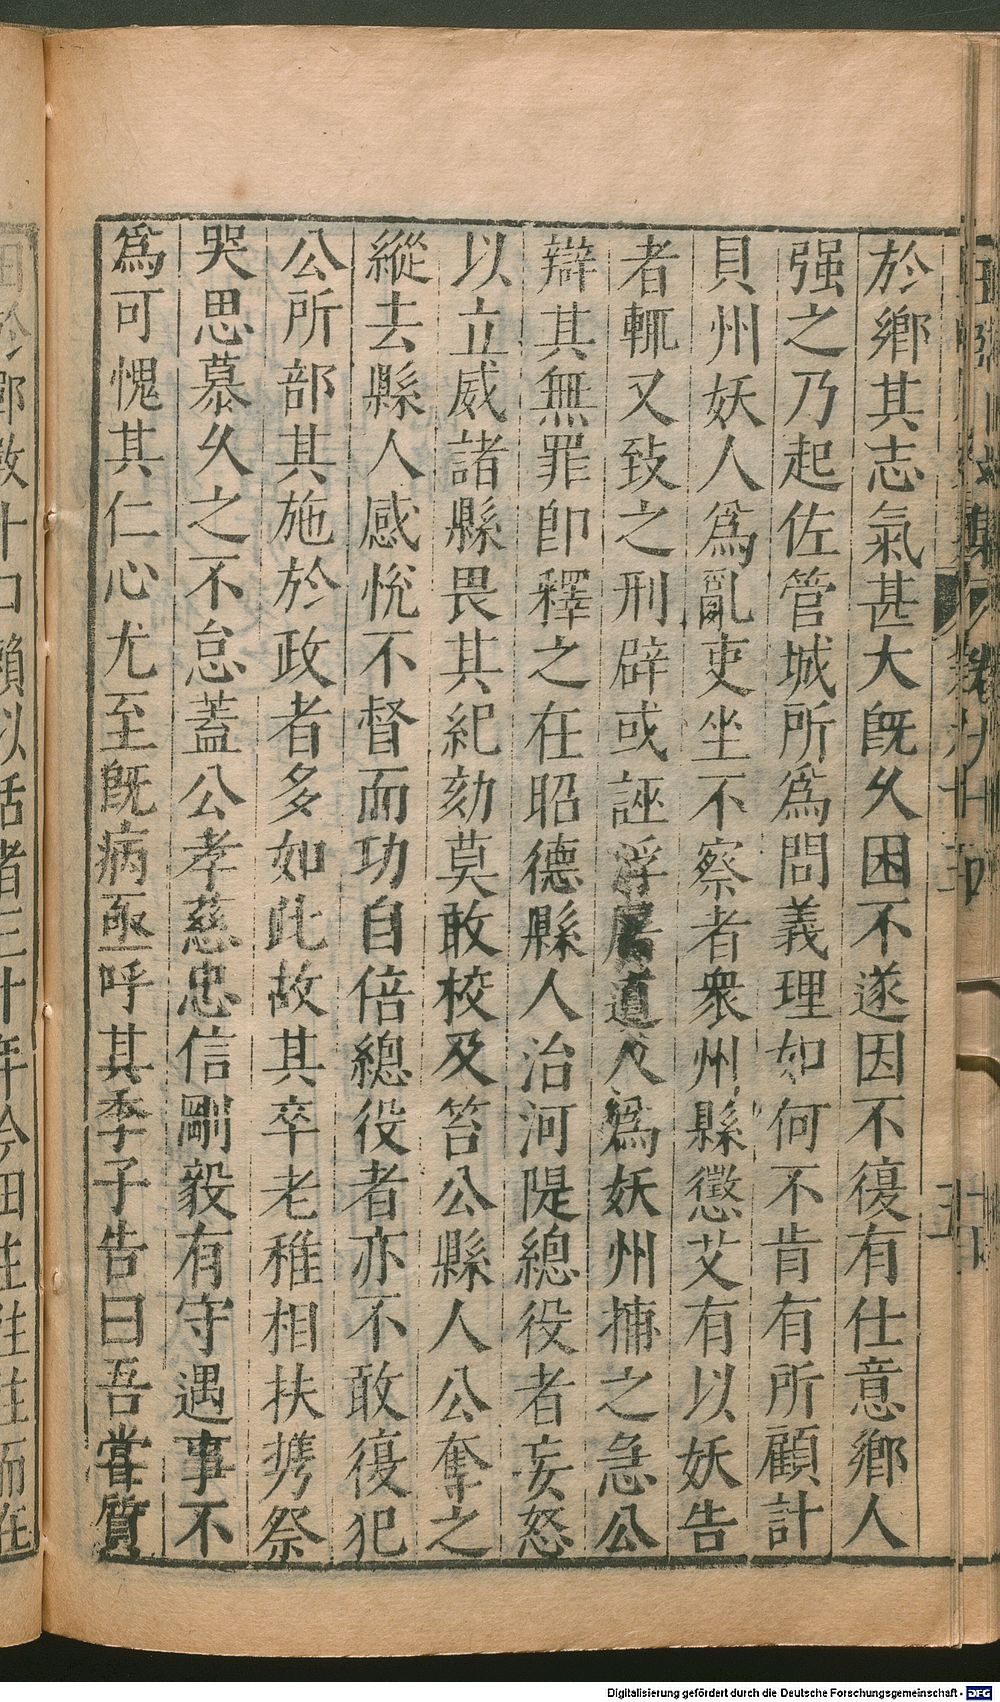 於鄉其志氣甚大旣久困不遂因不復有仕意鄉人
强之乃起佐管城所爲問義理如何不肯有所顧計
貝州妖人爲亂吏坐不察者衆州縣懲艾有以妖告
者輒又致之刑辟或誣浮屠道人爲妖州捕之急公
辯其無罪卽釋之在昭德縣人治河隄總役者妄怒
以立威諸縣畏其紀劾莫敢校及笞公縣人公奪之
縱去縣人感悅不督而功自倍總役者亦不敢復犯
公所部其施於政者多如此故其卒老稚相扶携祭
哭思慕久之不怠蓋公孝慈忠信剛毅有守遇事不
爲可愧其仁心尤至旣病亟呼其季子告曰吾嘗質
田於鄉數十口賴以活者三十年今田主往往而在
Digitalisierung gefördert durch die Deutsche Forschungsgemeinschaft - DFG